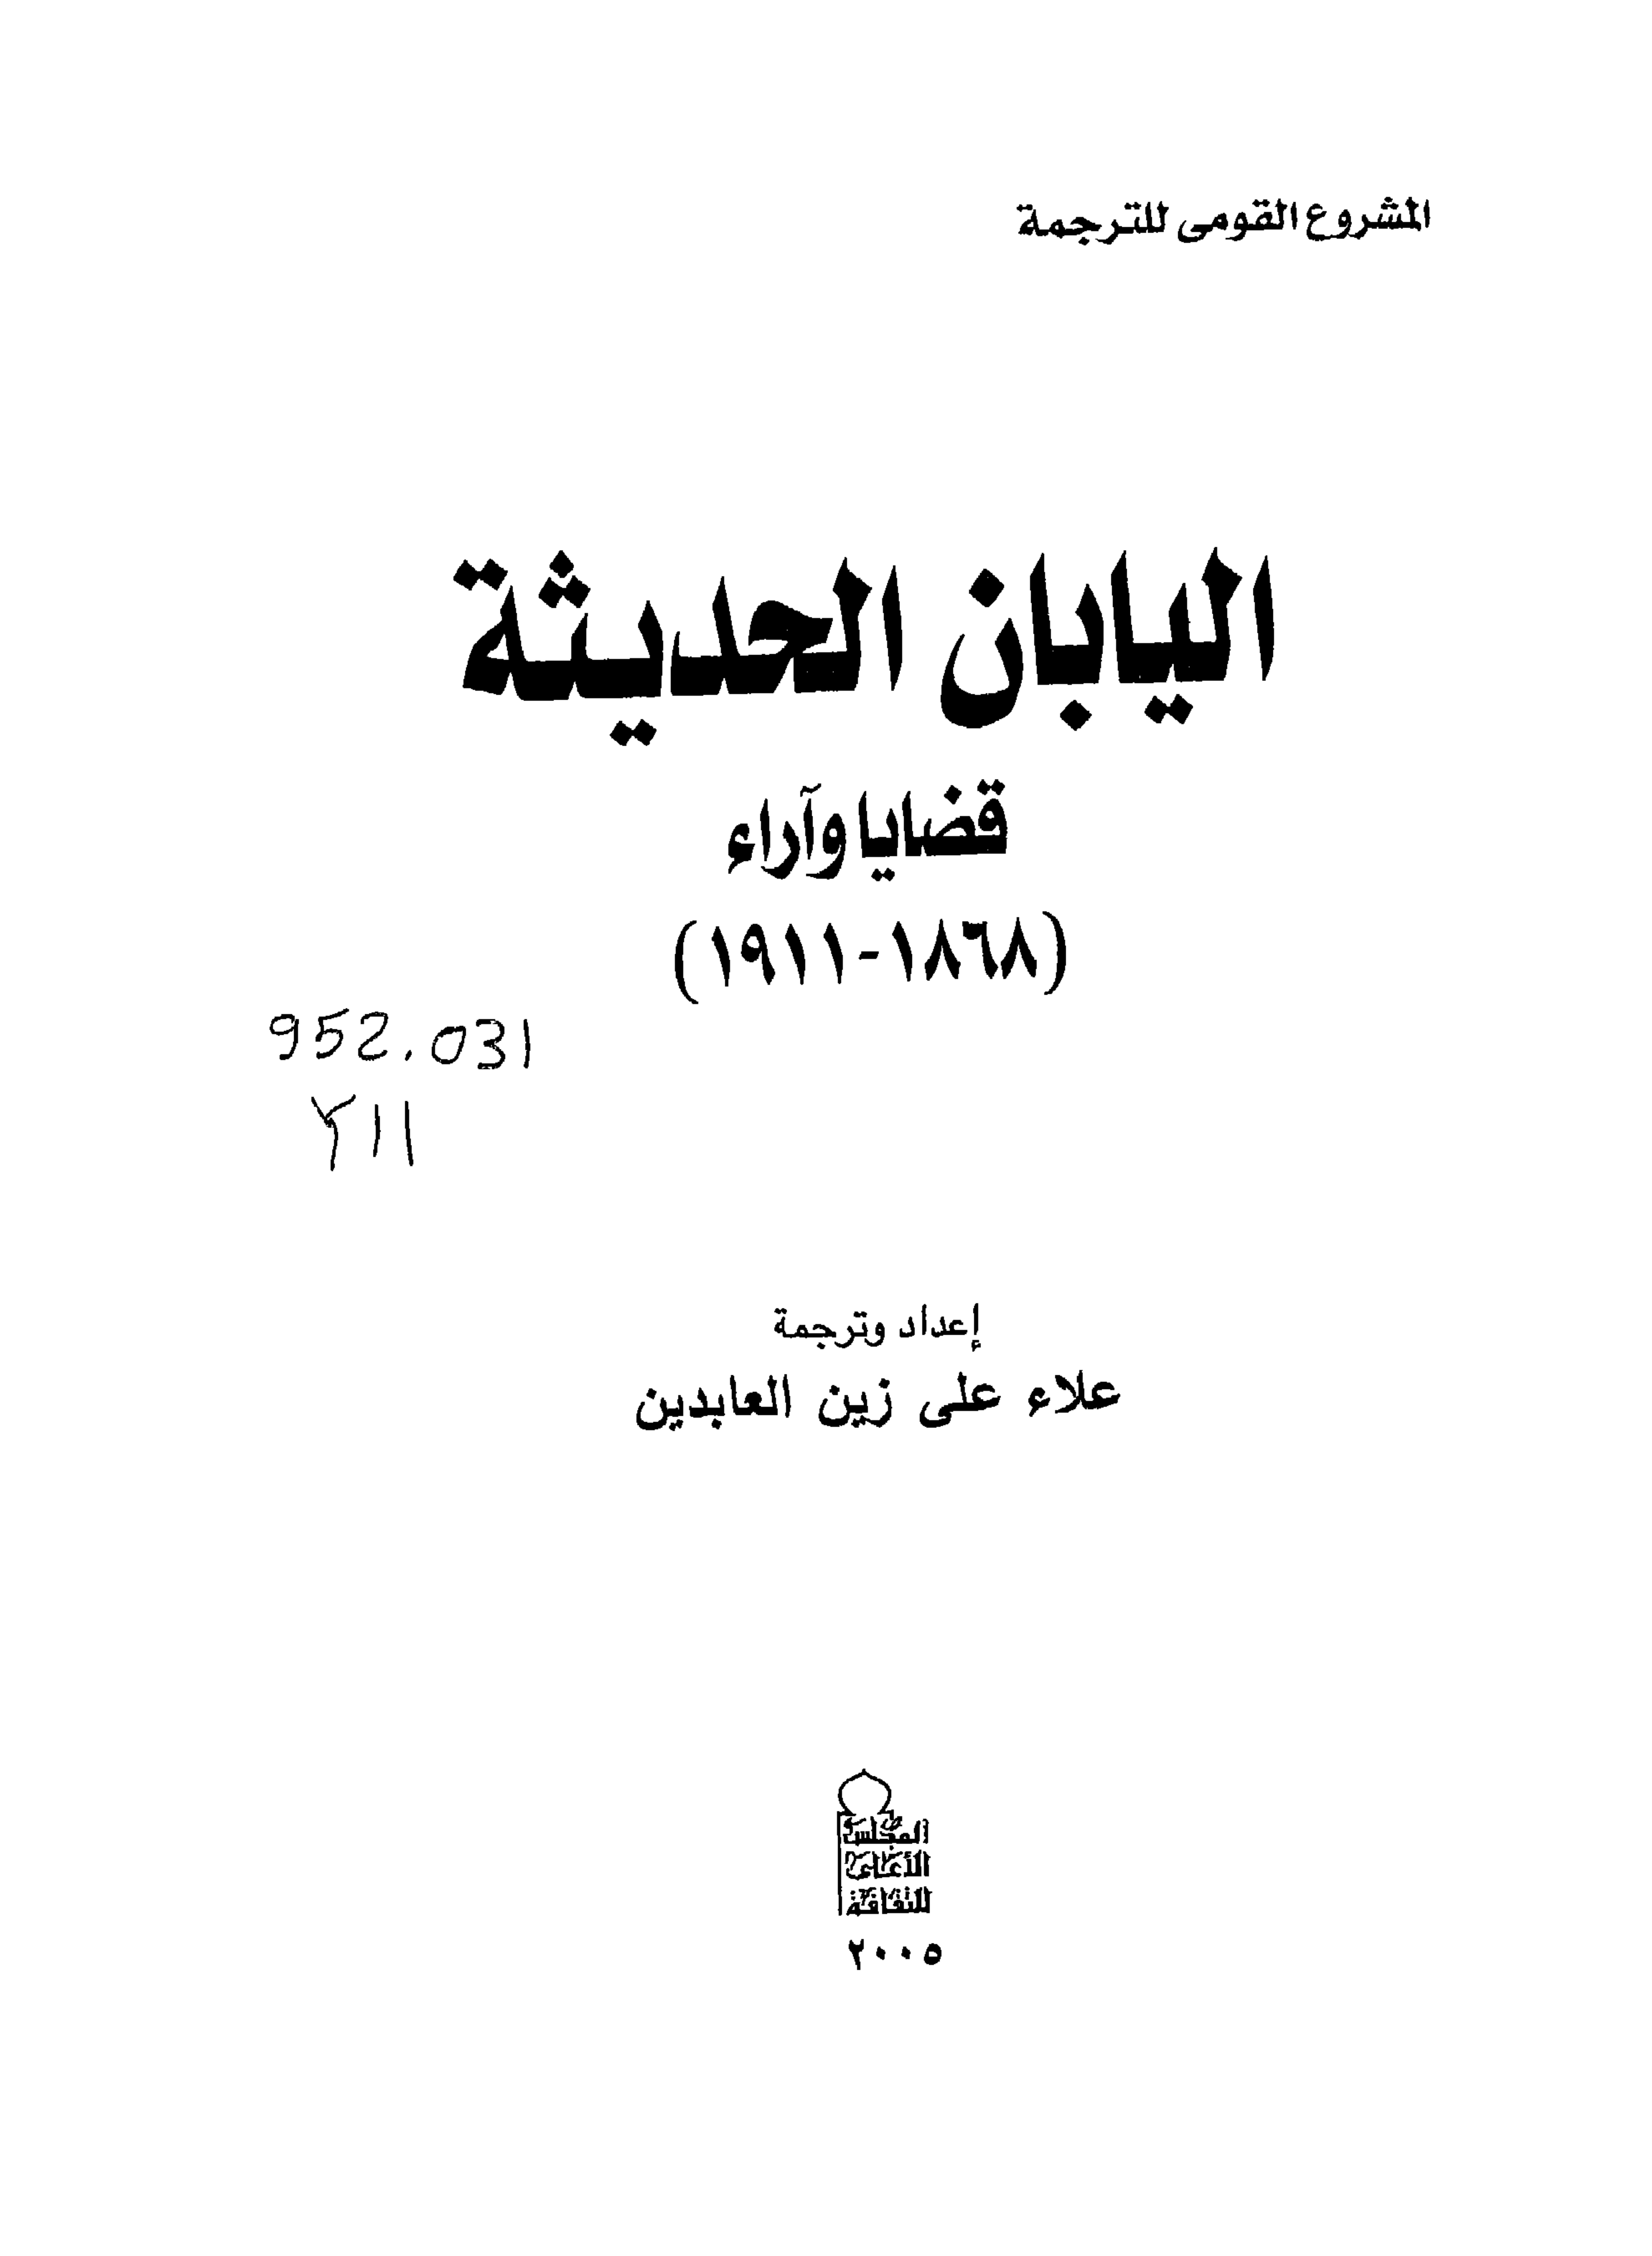 المشروع القومى للترجمة
اليابان الحديثة
قضايا وآراء
(١٨٦٨-١٩١١)
952.031
٢١١
إعداد وترجمة
علاء على زين العابدين
المجلس
الأعلى
للثقافة
٢٠٠٥